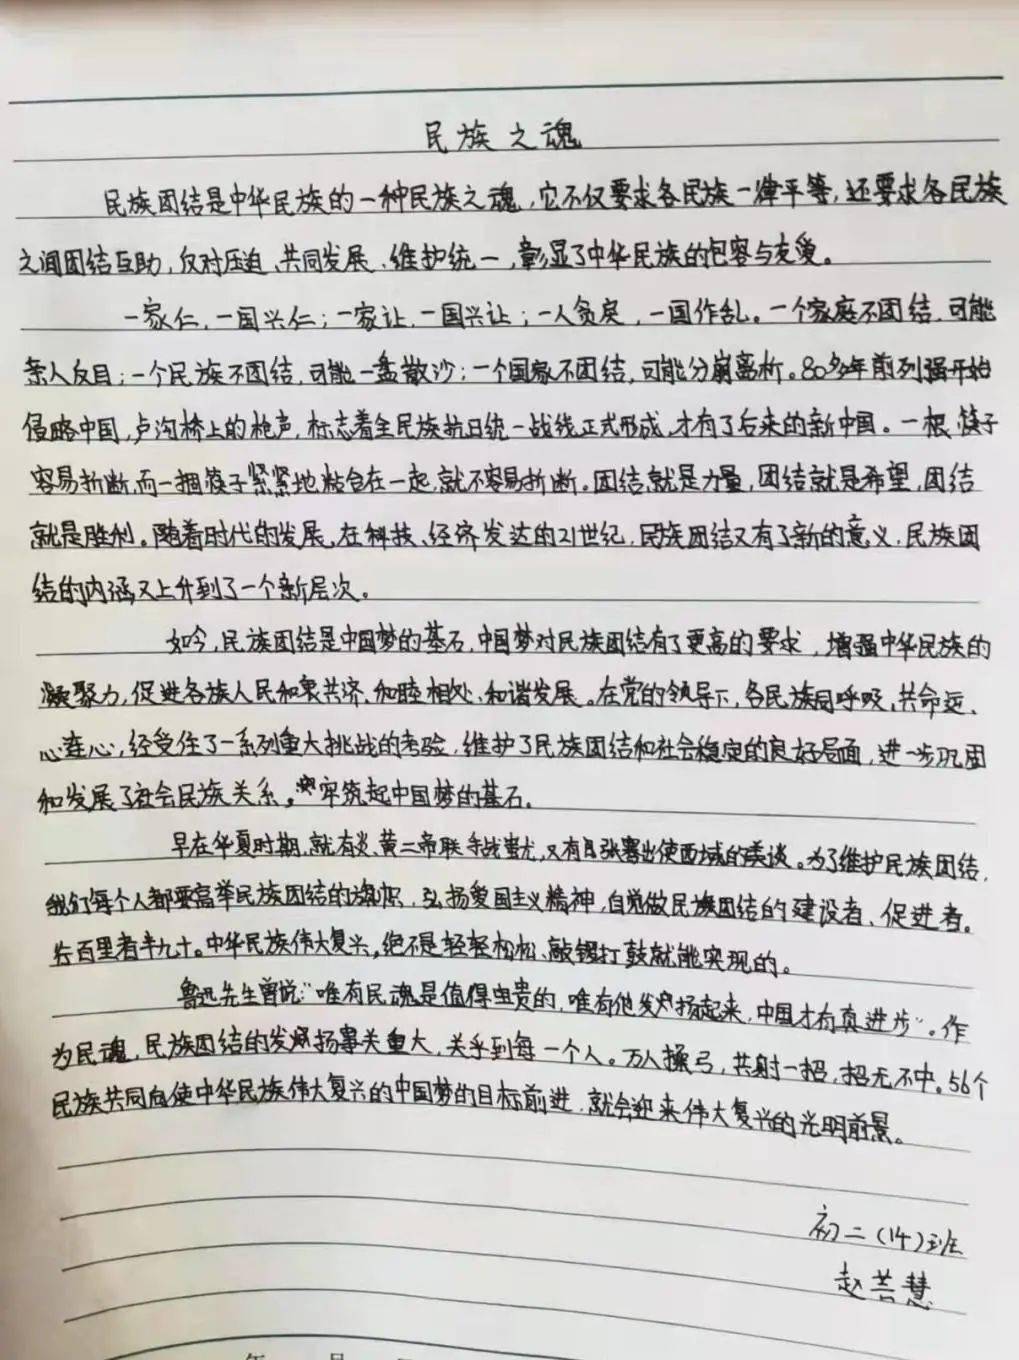 民族之魂
民族团结是中华民族的一种民族之魂，它不仅要求各民族一律平等，还要求各民族
之间团结互助，反对压迫、共同发展、维护统一，彰显了中华民族的包容与友爱。
一家仁，一国兴仁；一家让，一国兴让；一人贪戾，一国作乱。一个家庭不团结，可能
亲人反目；一个民族不团结，可能一盘散沙；一个国家不团结，可能分崩离析。80多年前列强开始
侵略中国，卢沟桥上的枪声，标志着全民族抗日统一战线正式形成，才有了后来的新中国。一根筷子
容易折断，而一捆筷子紧紧地粘合在一起，就不容易折断。团结就是力量，团结就是希望，团结
就是胜利。随着时代的发展，在科技、经济发达的21世纪，民族团结又有了新的意义，民族团
结的内涵又上升到了一个新层次。
如今，民族团结是中国梦的基石，中国梦对民族团结有了更高的要求，增强中华民族的
凝聚力，促进各族人民和衷共济、和睦相处、和谐发展。在党的领导下，各民族同呼吸、共命运、
心连心，经受住了一系列重大挑战的考验，维护了民族团结和社会稳定的良好局面，进一步巩固
和发展了社会民族关系。牢筑起中国梦的基石。
早在华夏时期，就有炎、黄二帝联手战蚩尤，又有张骞出使西域的美谈。为了维护民族团结，
我们每个人都要高举民族团结的旗帜，弘扬爱国主义精神，自觉做民族团结的建设者、促进者。
行百里者半九十。中华民族伟大复兴，绝不是轻轻松松、敲锣打鼓就能实现的。
鲁迅先生曾说：“唯有民魂是值得宝贵的，唯有他发扬起来，中国才有真进步”。作
为民魂，民族团结的发扬事关重大，关乎到每一个人。万人操弓，共射一招，招无不中。56个
民族共同向使中华民族伟大复兴的中国梦的目标前进，就会迎来伟大复兴的光明前景。
初二（14）班
赵芸慧
年 月